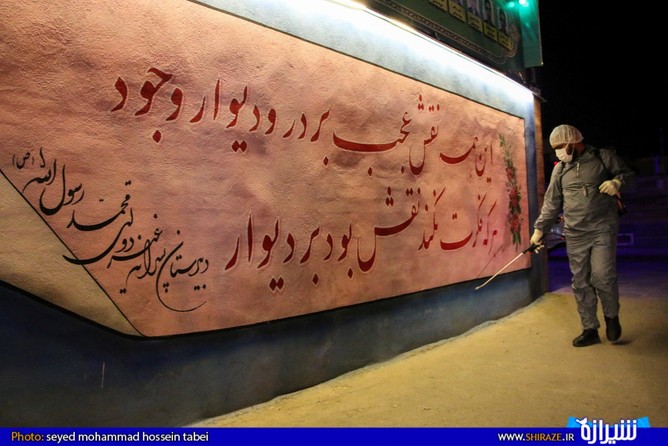 این همه نقش عجب بر در و دیوار وجود
هر که فکرت نکند نقش بود بر دیوار
دبیرستان پسرانه غیر دولتی محمد رسول الله (ص)
Photo: seyed mohammad hossein tabei
WWW.SHIRAZE.IR
شیرازه